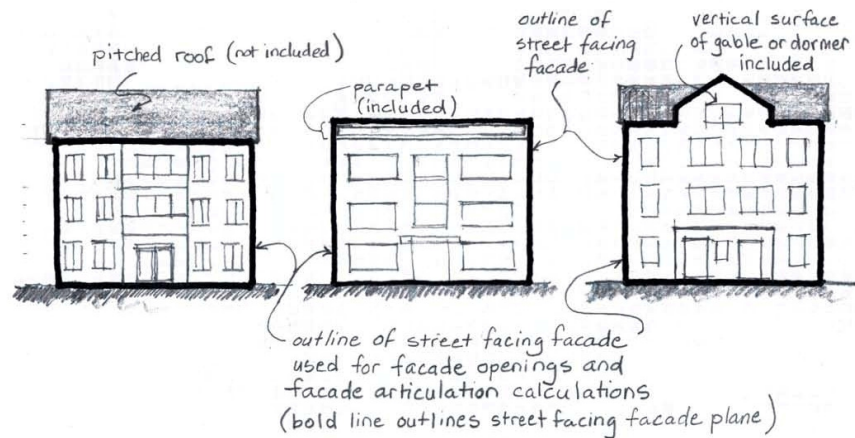 pitched roof (not included)
parapet
(included)
outline of
street facing
facade
vertical surface
of gable or dormer
included
outline of street facing facade
used for facade openings and
facade articulation calculations
(bold line outlines street facing facade plane)